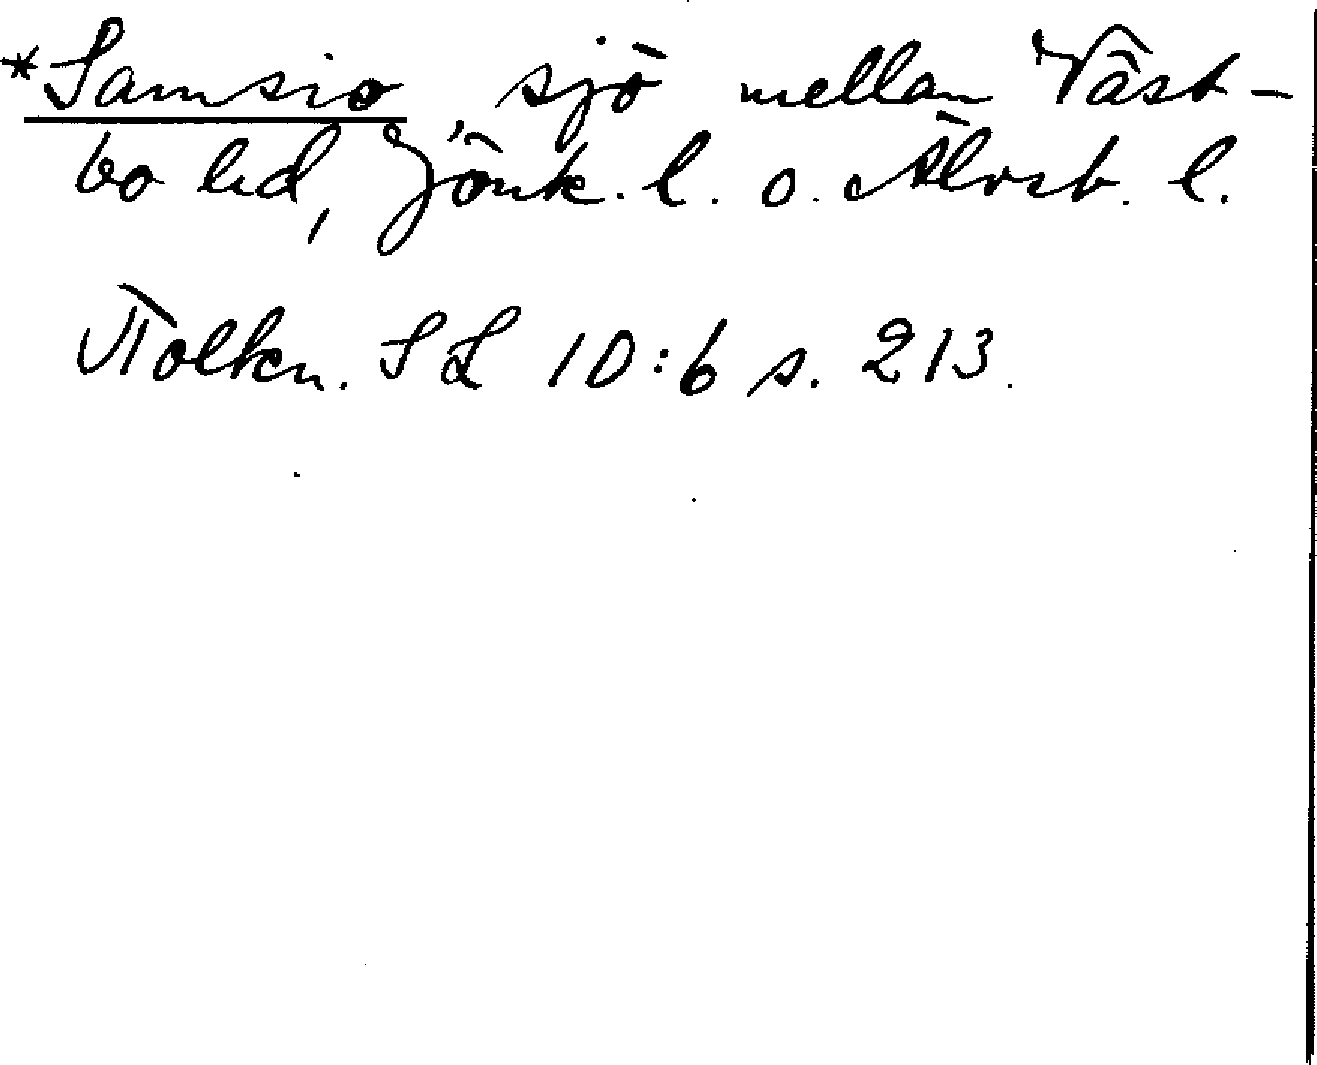 *Samsio, sjö mellan Väst-
bo hd, Jönk. l. o. Älvsb. l.
Tolkn. SL 10:6 s. 213.